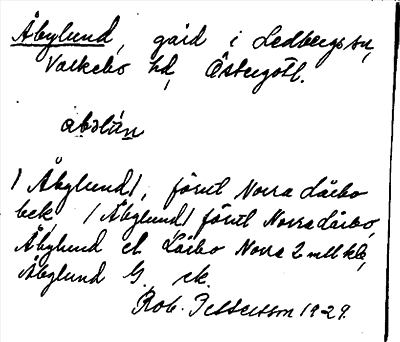 Åbylund, gård i Ledbergs sn,
Valkebo hd, Östergötl.
åbolún
/Åbylund/, förut Norra Lårbo
bek, /Åbylund/ förut Norra Lårbo,
Åbylund el. Lårbo Norra 2 mtl kb,
Åbylund G. ek.
Rob. Pettersson 1929.